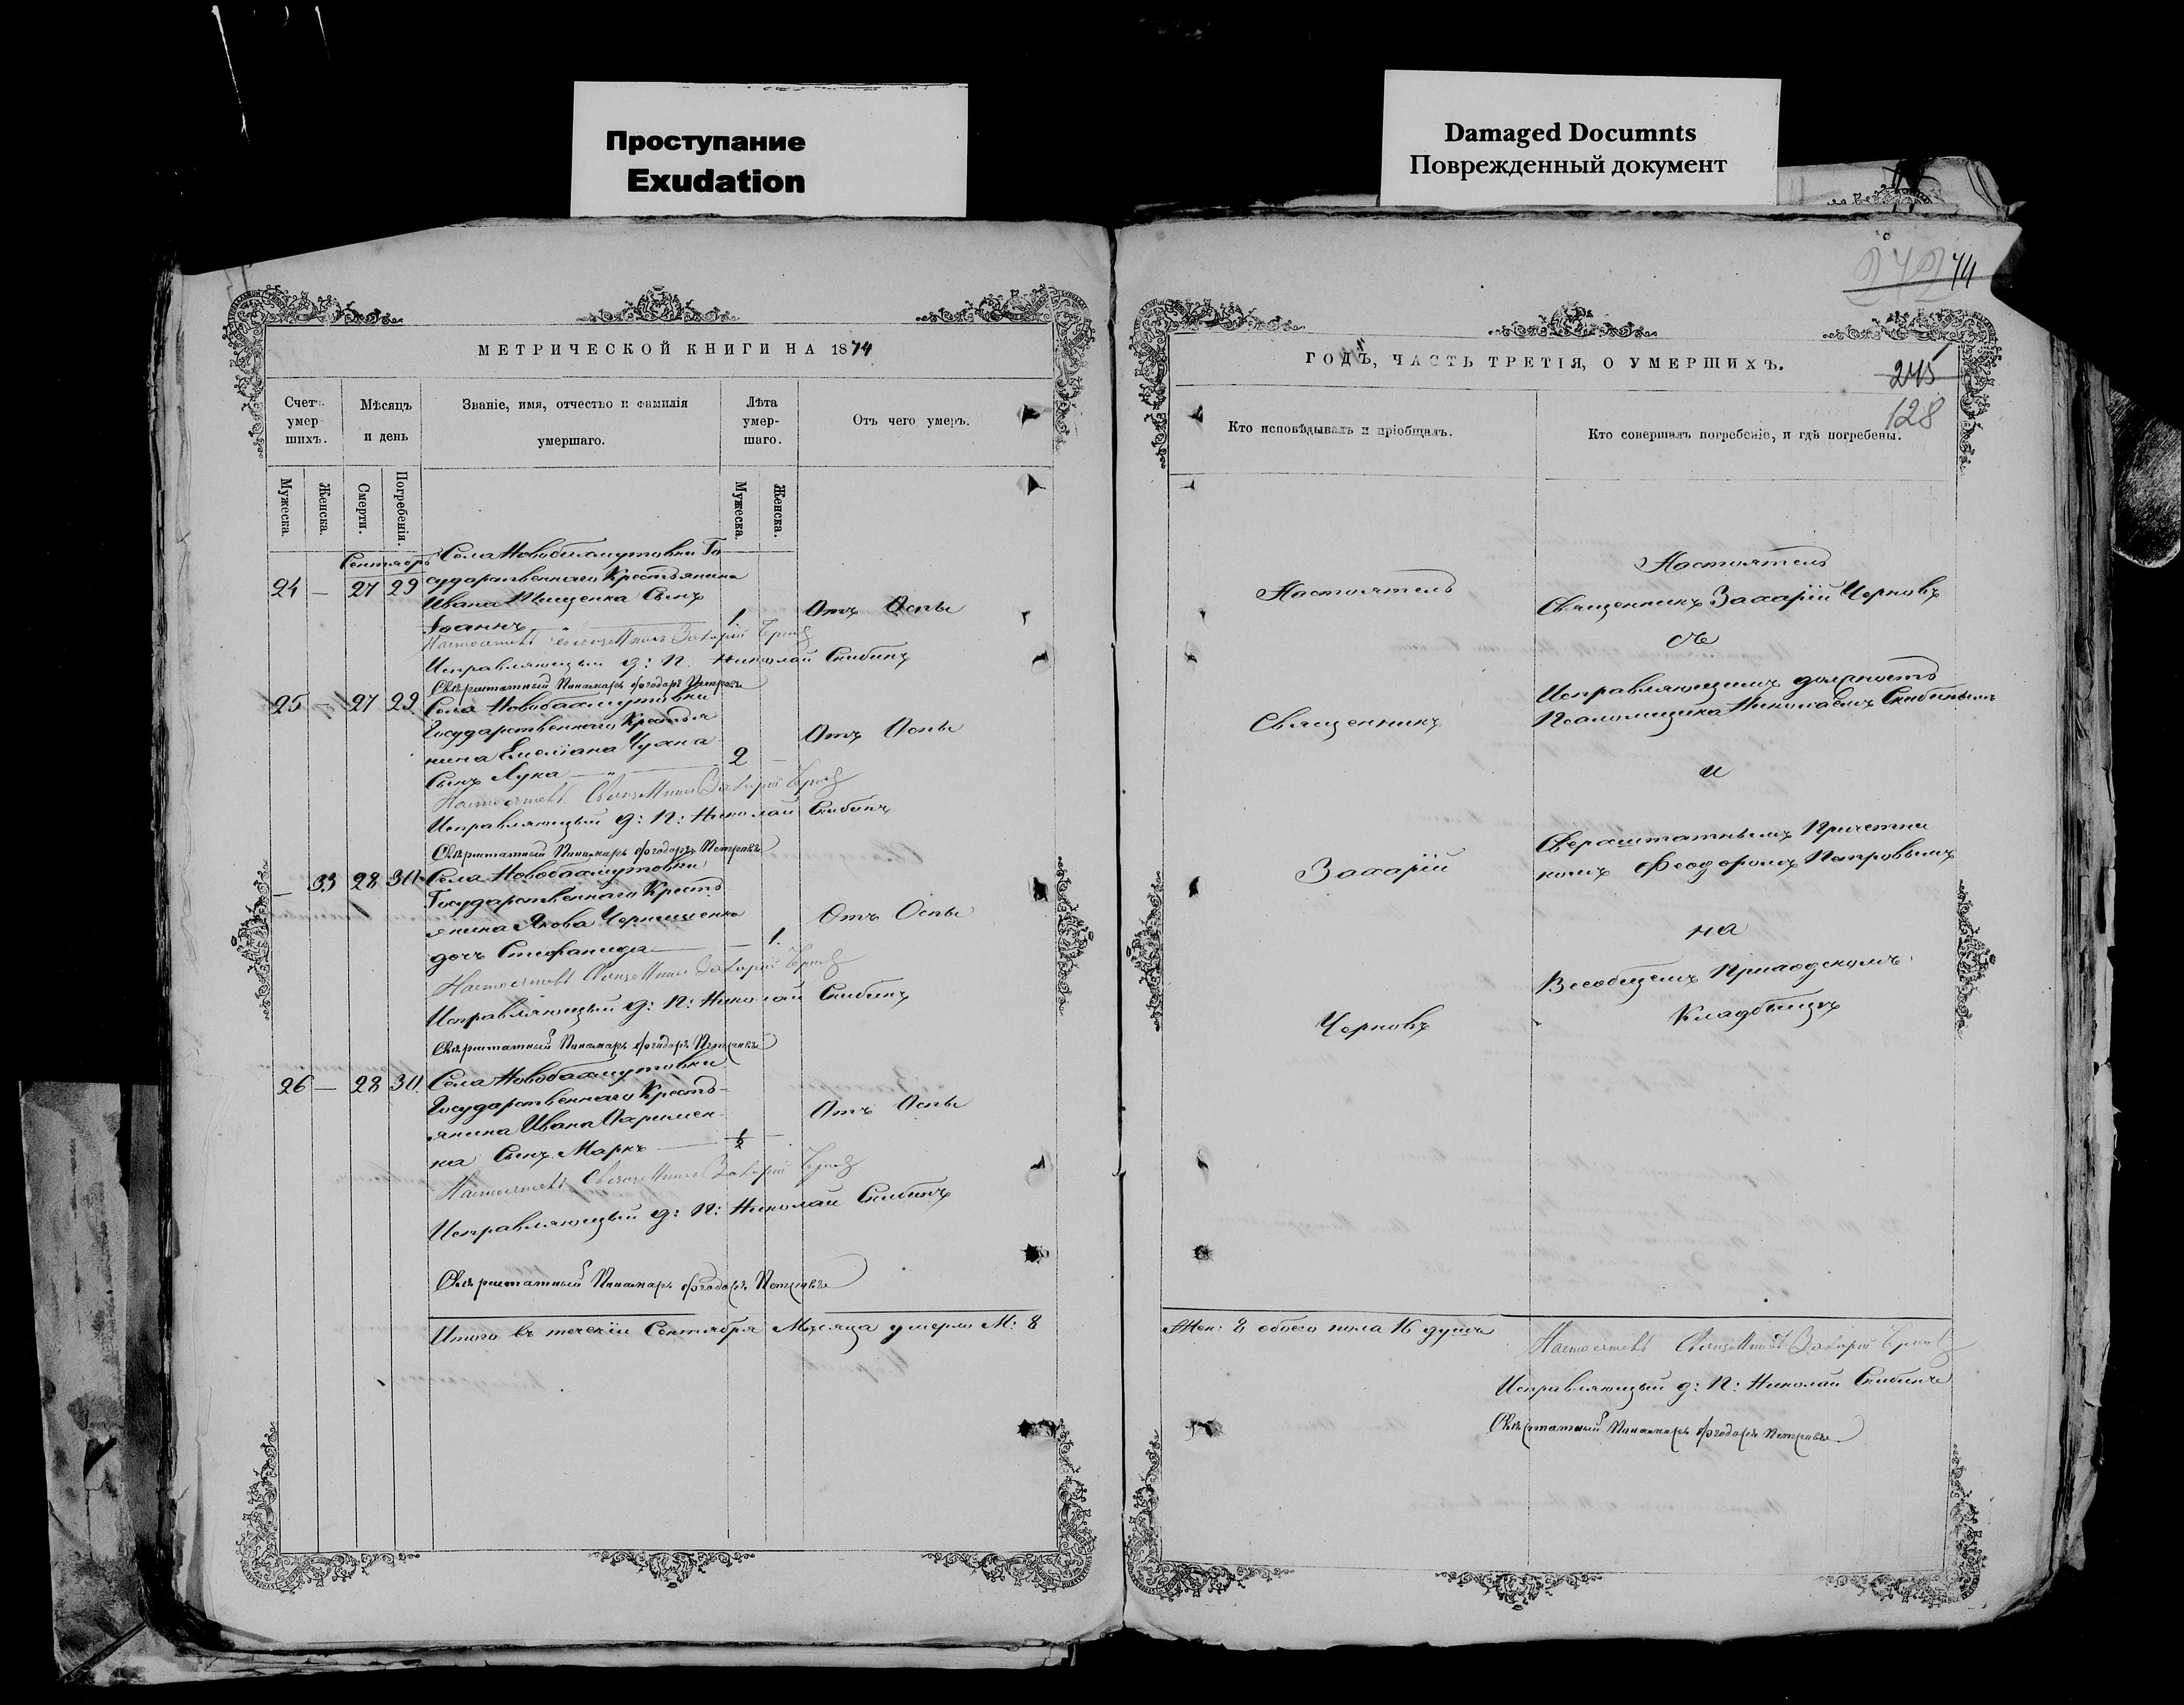 Проступание
Exudation
Damaged Documnts
Поврежденный документ
МЕТРИЧЕСКОЙ КНИГИ НА 1874
Счетъ умершихъ.
Мѣсяцъ и день
Званіе, имя, отчество и фамилія умершаго.
Лѣта умершаго.
Отъ чего умеръ.
Мужеска.
Женска.
Смерти.
Погребенія.
Мужеска.
Женска.
Сентябрь
Села Новобахмутовки Го
24 — 27 29 сударственнаго Крестьянина
Ивана Тищенка Сынъ
Іоаннъ — 1 Отъ Оспы
Настоятель Священникъ Захарій Черновъ
Исправляющый д: П. Николай Скибинъ
Сверхштатный Пономарь Ѳеодоръ Петровъ
25 — 27 29 Села Новобахмутовки
Государственнаго Крестья
нина Емеліана Чухна Отъ Оспы
Сынъ Лука — 2 —
Настоятель Священникъ Захарій Черновъ
Исправляющый д: П: Николай Скибинъ
Сверхштатный Пономарь Ѳеодоръ Петровъ
— 33 28 30 Села Новобахмутовки
Государственнаго Кресть
янина Якова Чернишенка Отъ Оспы
дочь Стефанида — — 1.
Настоятель Священникъ Захарій Черновъ
Исправляющый д: П: Николай Скибинъ
Сверхштатный Пономарь Ѳеодоръ Петровъ
26 — 28 30 Села Новобахмутовки
Государственнаго Кресть-
янина Ивана Охримен- Отъ Оспы
ка Сынъ Маркъ — 1/2 —
Настоятель Священникъ Захарій Черновъ
Исправляющый д: П: Николай Скибинъ
Сверхштатный Пономарь Ѳеодоръ Петровъ
Итого въ теченіи Сентября Мѣсяца умерло М: 8
74
ГОДЪ, ЧАСТЬ ТРЕТІЯ, О УМЕРШИХЪ.
245
128
Кто исповѣдывалъ и пріобщалъ.
Кто совершалъ погребеніе, и гдѣ погребены.
Настоятель
Священникъ
Захарій
Черновъ
Настоятель
Священникъ Захарій Черновъ
съ
Исправляющимъ должность
Псаломщика Николаемъ Скибинымъ
и
Сверхштатнымъ Причетни
комъ Ѳеодоромъ Петровымъ
на
Всеобщемъ Приходскомъ
Кладбищѣ
Жен: 8 обоего пола 16 душъ
Настоятель Священникъ Захарій Черновъ
Исправляющый д: П: Николай Скибинъ
Сверхштатный Пономарь Ѳеодоръ Петровъ